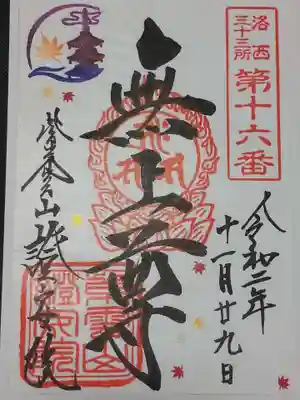 洛西
三十三所
第十六番
無上尊
令和二年
十一月廿九日
山證安院
證安院